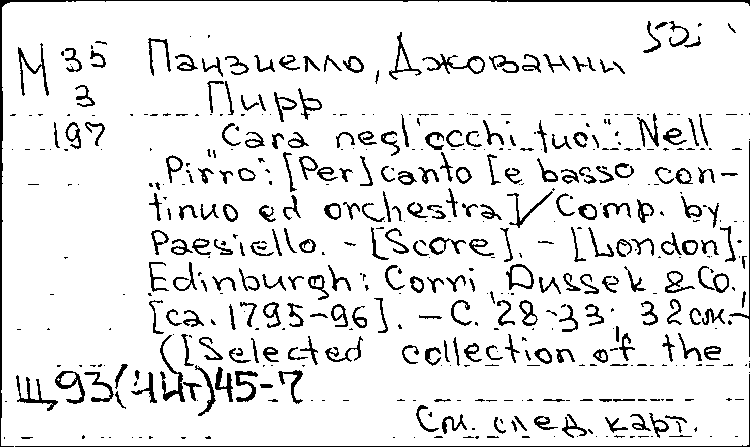 53i
М 35 Паизиелло, Джованни
3 Пирр
197 "Cara negl'occhi tuoi": Nell
"Pirro": [Per] canto [e basso con-
tinuo ed orchestra] / Comp. by
Paesiello. - [Score]. - [London];
Edinburgh: Corri, Dussek & Co.,
[ca. 1795-96]. - С. 28-33; 32 см. -
([Selected collection of the
Щ93(4Ит)45-7
См. след. карт.